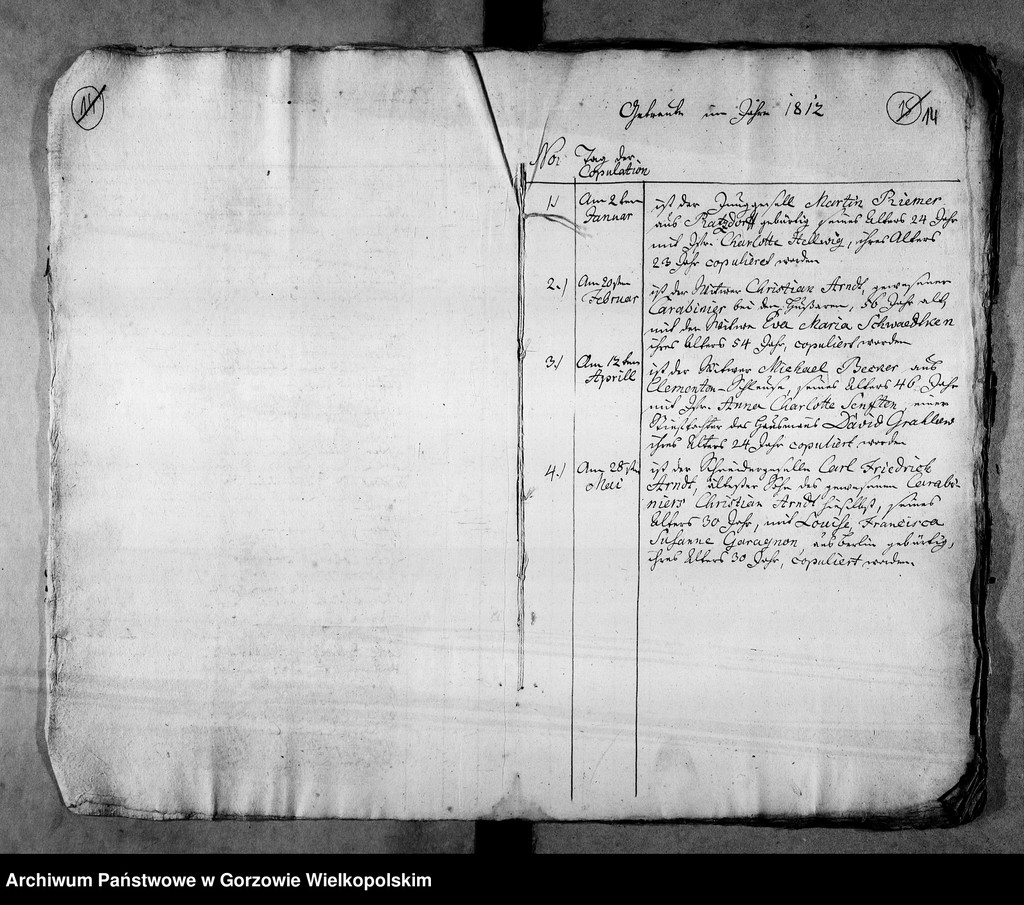 14
Getraute im Jahre 1812
15 14
No: Tag der
Copulation
1.) Am 2ten
Januar
ist der Junggesell Martin Riemer
aus Ratzdorff gebürtig seines Alters 24 Jahr
mit Jfr. Charlotte Hellwig, ihres Alters
23 Jahr copuliert worden
2.) Am 20sten
Februar
ist der Witwer Christian Arndt, gewesener
Carabinier bei den Husaren, 56 Jahr alt,
mit der Witwe Eva Maria Schwaedtken
ihres Alters 54 Jahr, copuliert worden
3.) Am 12ten
Aprill
ist der Witwer Michael Becker aus
Clementen-Schleuse, seines Alters 46 Jahr
mit Jfr. Anna Charlotte Senfften, einer
Stieftochter des Hausmanns David Grallow
ihres Alters 24 Jahr copuliert worden
4.) Am 28sten
Mai
ist der Schneidergeselle Carl Friedrich
Arndt, ältester Sohn des gewesenen Carabi-
niers Christian Arndt hieselbst, seines
Alters 30 Jahr, mit Louise, Francisca
Susanne Garagnon aus Berlin gebürtig,
ihres Alters 30 Jahr, copuliert worden.
Archiwum Państwowe w Gorzowie Wielkopolskim